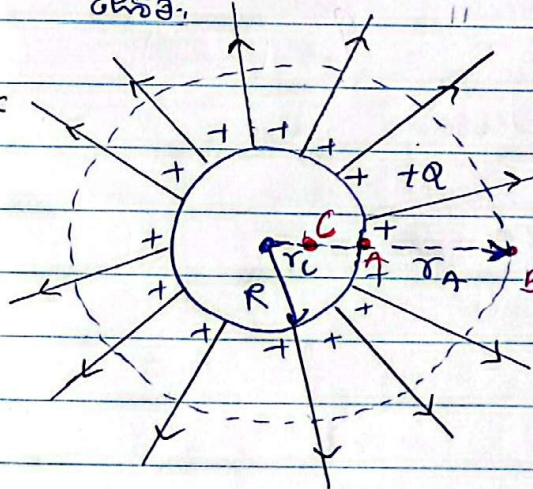 "
+Q
C
A
B
r_C
r_A
R
+ + + + + + + + + + + +